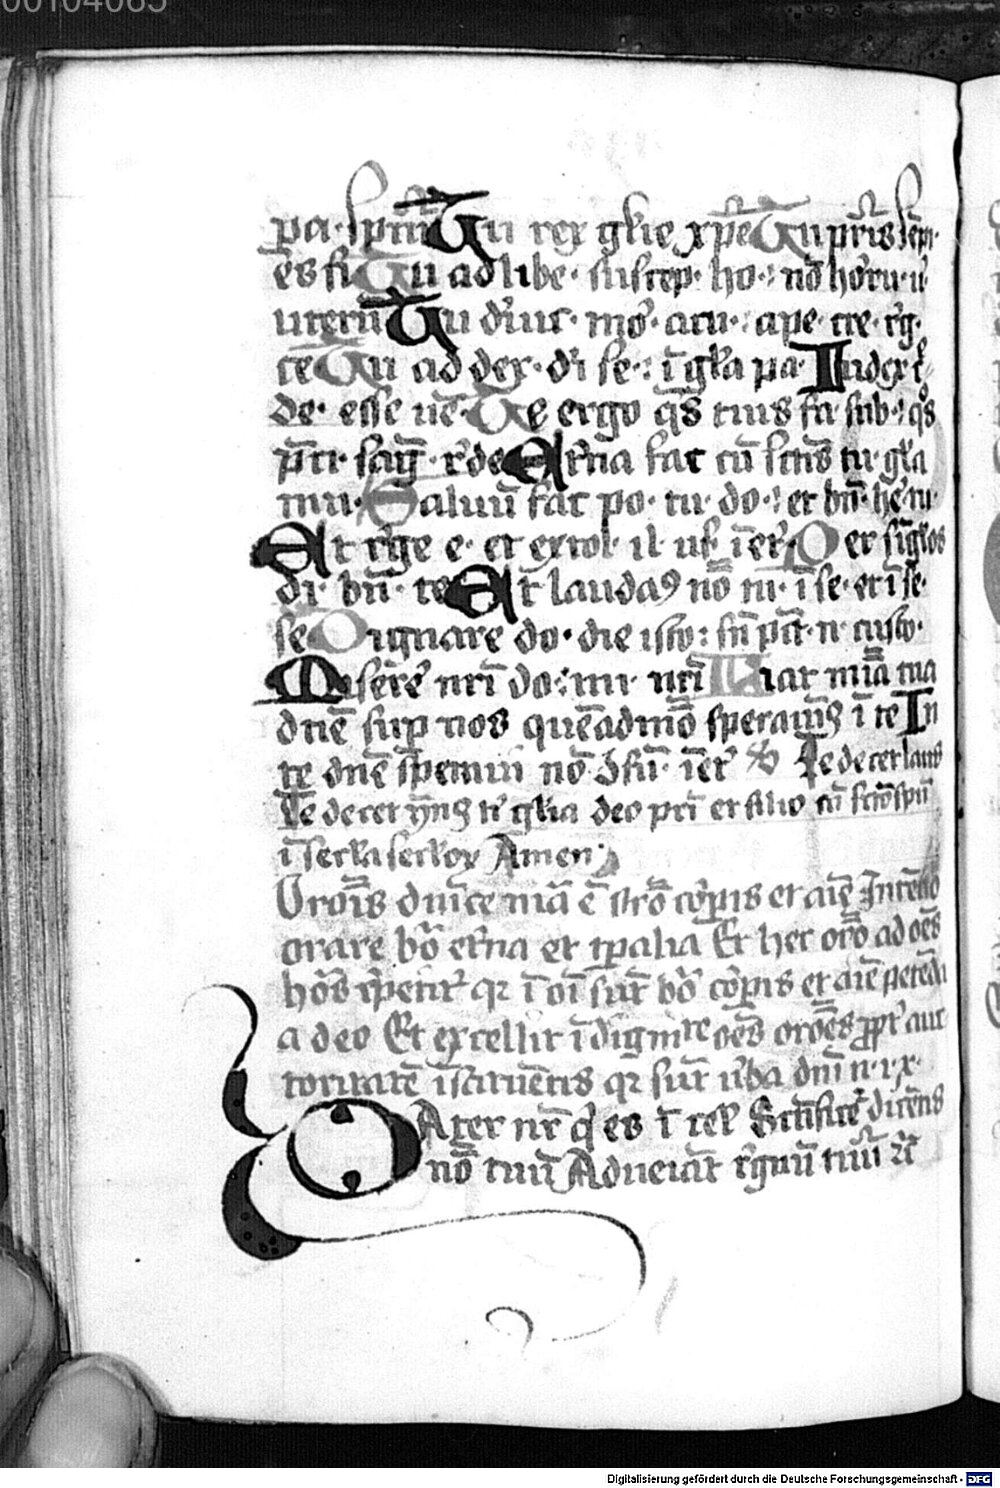 00104085
pa· spm̄ Tu rex glīe xpē Tu pr̄is sēpi·
es fi Tu ad libe· suscep· ho·: nō horru· u·
uterū Tu diuic· mor· acu·: ape· cre· rg·
ce Tu ad dex· di se·: ī gl̄a pa· Iudex c̄
de· esse uē· Te ergo qs̄ tuis fa· sub·: qs
p̄ci· sāg· rde Etr̄na fac cū sctis̄ tu· gl̄a
mu· Saluū fac po· tu· do·: et bn̄· he· tu·
Et rge e· et extol· il· usꝫ ī etr̄ Per sīglos
di· bn̄· te Et laudaꝯ nō tu· ī se· et ī se·
se Dignare do· die isto: sn̄ pcā· n· custo·
Misere nr̄i do·: mi· nr̄i Fiat mīa tua
dn̄e sup nos quēadmō sperauiꝯ ī te In
te dn̄e speraui nō ꝯfū· ī etr̄ Te decet laus
Te decet ymꝯ ti gl̄ia deo pr̄i et filio cū sctō spū
ī secl̄a secl̄oꝝ Amen
Orōis dn̄ice mā ē īstrō corpīs et aīe Intēdo
orare bō etr̄na et tpalia Et hec orō ad oēs
hōs ꝑtinet qꝛ ī oī sūt bō corpīs et aīe petēda
a deo Et excellit ī dignitate oēs orōes ꝓpt̄ auc
toritatē īstituētis qꝛ sūt uba dn̄i n· i· x·
PAter nr̄ qͥ es ī cel̄ Sctīficet̄
nō tuū Adueiat rgnū tuū ⁊c̄
dicēns
Digitalisierung gefördert durch die Deutsche Forschungsgemeinschaft - DFG